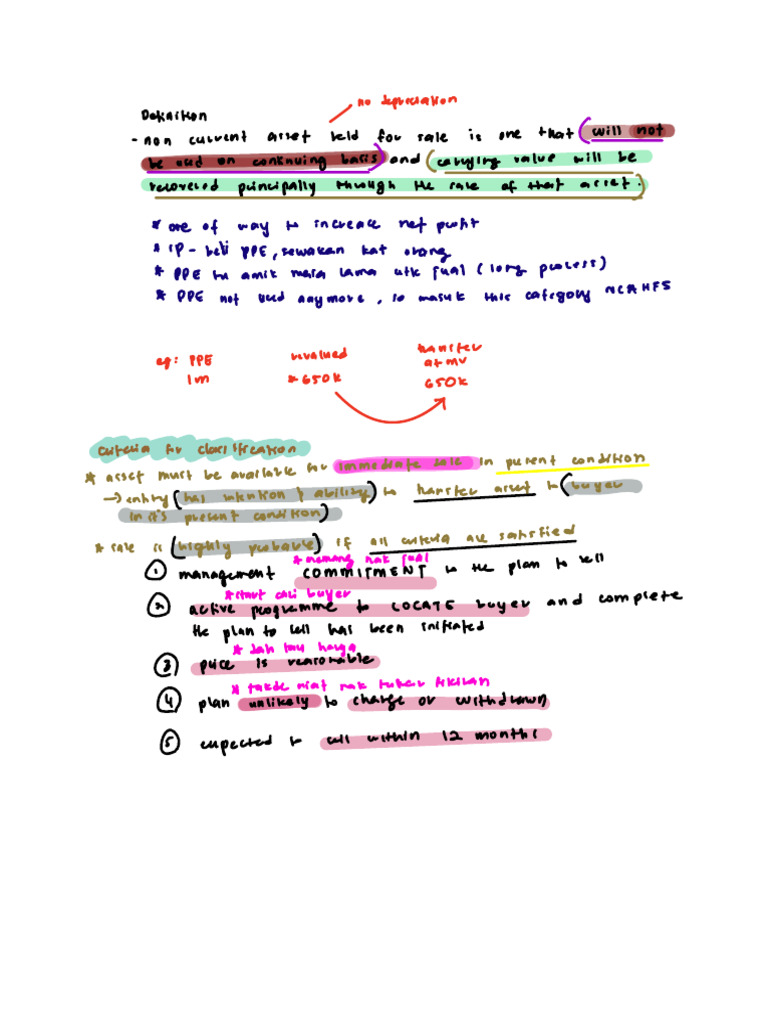 no depreciation
Definition
- non current asset held for sale is one that (will not
be used on continuing basis) and (carrying value will be
recovered principally through the sale of that asset.)
* one of way to increase net profit
* IP - beli PPE, sewakan kat orang
* PPE tu amik masa lama utk jual (long process)
* PPE not used anymore, so masuk this category NCAHFS
eg: PPE revalued transfer at mv
1m * 650k 650k
criteria for classification
* asset must be available for immediate sale in present condition
→ entity (has intention & ability) to transfer asset to (buyer
in it's present condition)
* sale is (highly probable) if all criteria are satisfied
* memang nak jual
① management COMMITMENT to the plan to sell
* start cari buyer
② active programme to LOCATE buyer and complete
the plan to sell has been initiated
* dah tau harga
③ price is reasonable
* takde niat nak tukar fikiran
④ plan unlikely to change or withdrawn
⑤ expected to sell within 12 months